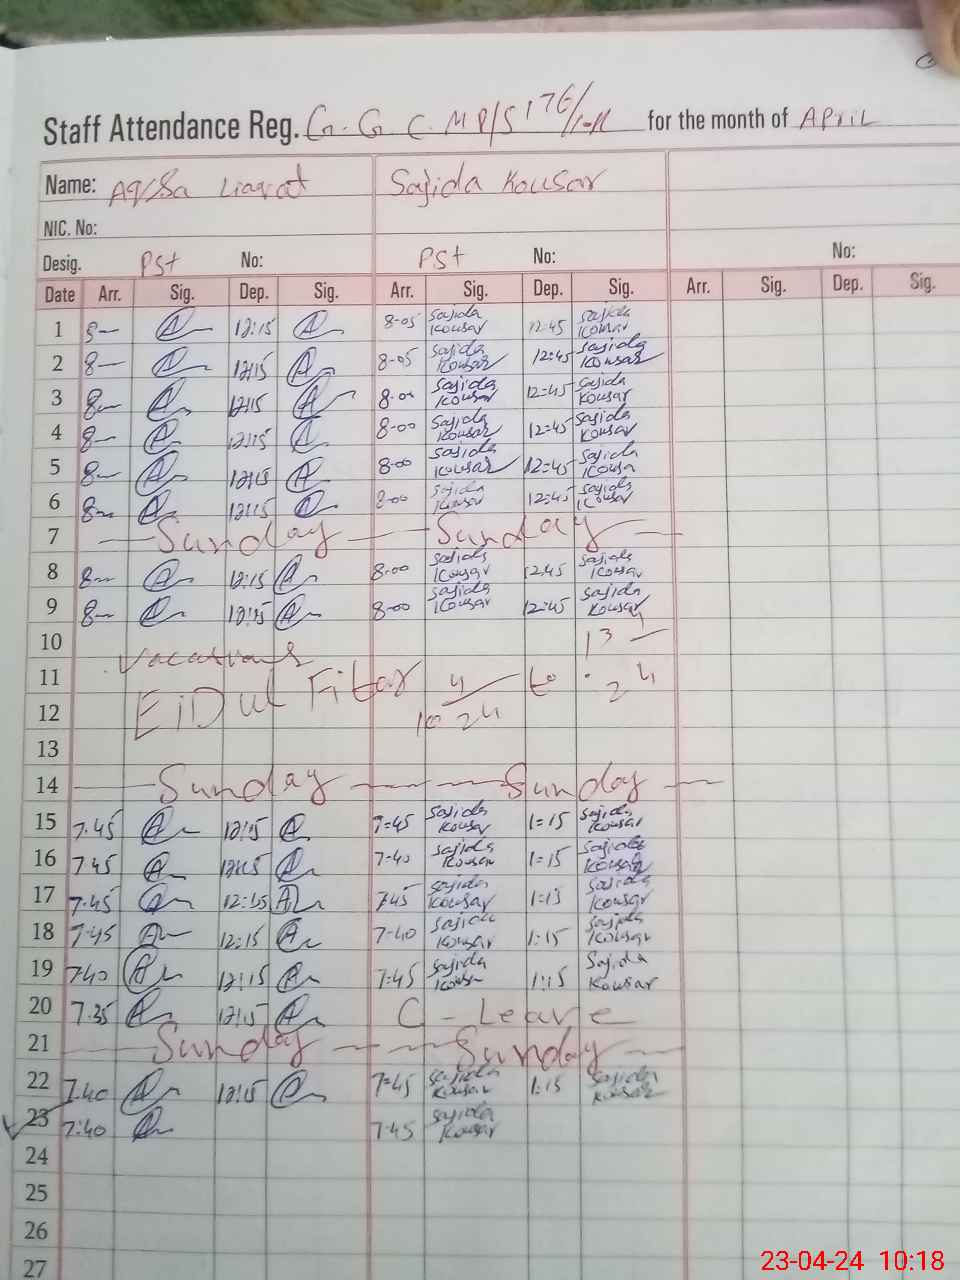 Staff Attendance Reg. G. G. C. M P/S 176/ for the month of APRIL
Name: Aqsa Liaqat Sajida Kousar
NIC. No:
Desig. PSt No: PSt No: No:
Date Arr. Sig. Dep. Sig. Arr. Sig. Dep. Sig. Arr. Sig. Dep. Sig.
1 8— A 12:15 A 8-05 Sajida Kousar 12:45 Sajida Kousar
2 8— A 12:15 A 8-05 Sajida Kousar 12:45 Sajida Kousar
3 8— A 12:15 A 8-00 Sajida Kousar 12:45 Sajida Kousar
4 8— A 12:15 A 8-00 Sajida Kousar 12:45 Sajida Kousar
5 8— A 12:15 A 8-00 Sajida Kousar 12:45 Sajida Kousar
6 8— A 12:15 A 8-00 Sajida Kousar 12:45 Sajida Kousar
7 — Sunday — Sunday —
8 8— A 12:15 A 8-00 Sajida Kousar 12:45 Sajida Kousar
9 8— A 12:15 A 8-00 Sajida Kousar 12:45 Sajida Kousar
10 Vacations 13 4
11 EiD ul Fitar 4 to 24
12 10 24
13
14 — Sunday — Sunday —
15 7.45 A 12:15 A 7=45 Sajida Kousar 1=15 Sajida Kousar
16 7.45 A 12:15 A 7-40 Sajida Kousar 1=15 Sajida Kousar
17 7.45 A 12:15 A 7:45 Sajida Kousar 1:15 Sajida Kousar
18 7.45 A 12:15 A 7-40 Sajida Kousar 1:15 Sajida Kousar
19 7.40 A 12:15 A 7:45 Sajida Kousar 1:15 Sajida Kousar
20 7.35 A 12:15 A C - Leave
21 — Sunday — Sunday —
22 7.40 A 12:15 A 7=45 Sajida Kousar 1:15 Sajida Kousar
23 7:40 A 7.45 Sajida Kousar
24
25
26
27
23-04-24 10:18